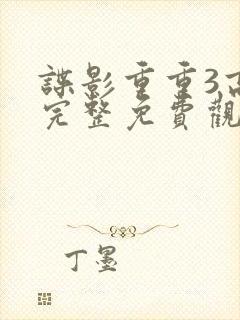 諜影重重3,高
完整免費觀
丁墨